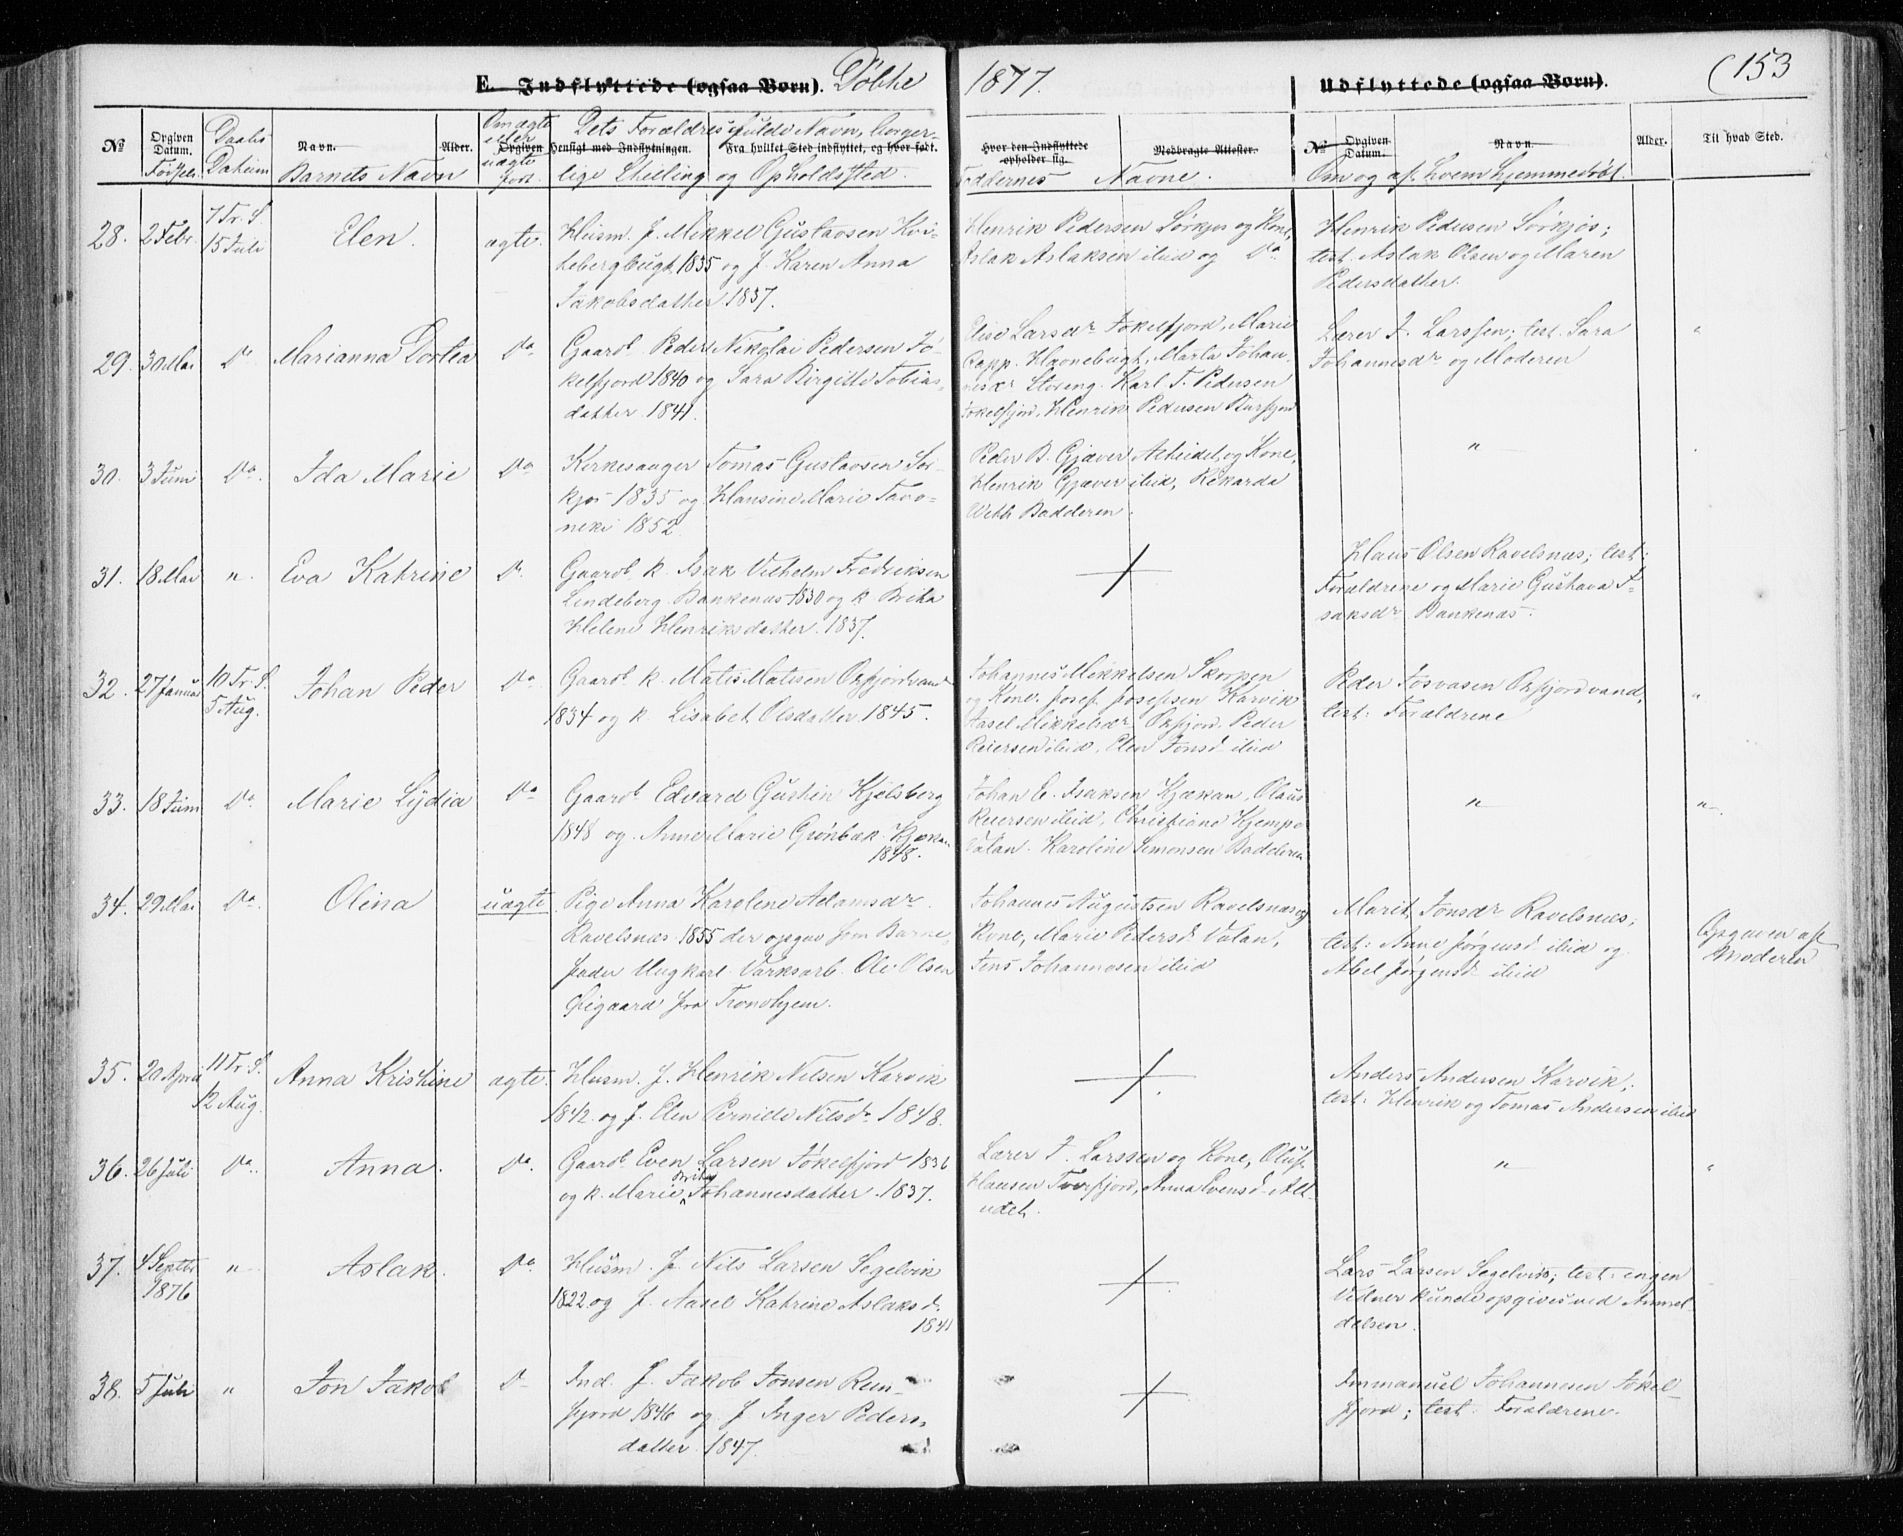 E. Indflyttede (ogsaa Børn). Døbte 1877. Udflyttede (ogsaa Børn). (153
No
Opgiven Datum.
Fødsels
Daabs
Datum
Navn.
Barnets Navn
Alder.
Om ægte
eller
uægte
født.
Opgiven Hensigt med Indflytningen.
Fra hvilket Sted indflyttet, og hvor født.
Dets Forældres fulde Navn, borger-
lige Stilling og Opholdssted.
Hvor den Indflyttede opholder sig.
Medbragte Attester.
Faddernes Navne.
No
Opgiven Datum.
Navn.
Om og af hvem hjemmedøbt.
Alder.
Til hvad Sted.
28. 2 Febr.
7 Tr. S.
15 Juli
Elen.
ægte.
Husm. f. Mikkel Gustavsen Kvi-
tebergbugt 1835 og f. Karen Anna
Jakobsdatter 1837.
Henrik Pedersen Sørkjos og Kone,
Aslak Aslaksen ibid og Do
Henrik Pedersen Sørkjos;
test. Aslak Olsen og Maren
Pedersdatter.
29. 30 Mai
Do
Marianna Dortea
Do
Gaardb. Peder Nikolai Pedersen Jø-
kelfjord 1840 og Sara Birgitte Tobias-
datter 1841.
Elise Larsdr Jøkelfjord, Marie
Rapp. Havnebugt, Marta Johan-
nesdr Storeng. Karl J. Pedersen
Jøkelfjord, Henrik Pedersen Burfjord
Lærer J. Larssen; test. Sara
Johannesdr og Moderen
"
30. 3 Juni
Do.
Ida Marie
Do
Kirkesanger Tomas Gustavsen Sør-
kjos 1835 og Hansine Marie Tavo-
neki 1852
Peder B. Gjæver Alteidet og Kone,
Henrik Gjæver ibid, Rikarda
Weth Badderen.
"
31. 18 Mai
"
Eva Katrine
Do
Gaardb. k. Isak Vilhelm Fredriksen
Lindeberg Bankenæs 1830 og k. Brita
Helene Henriksdatter. 1837.
+
Hans Olsen Ravelsnæs; test:
Forældrene og Marie Gustava I-
saksdr Bankenæs.
32. 27 Januar
10 Tr. S.
5 Aug.
Johan Peder
Do
Gaardb. k. Matis Matisen Oxfjordvand
1834 og k. Lisabet Olsdatter 1845.
Johannes Mikkelsen Skorpen
og Kone. Josef Josefsen Karvik
Aasel Mikkelsdr Oxfjord. Peder
Reiersen ibid, Elen Jonsd. ibid
Peder Josvasen Oxfjordvand,
test: Forældrene
"
33. 18 Juni
Do.
Marie Lydia
Do
Gaardb. Edvard Gustin Kjelsberg
1848 og Anne Marie Grønbæk Kjækan
1848.
Johan E. Isaksen Kjækan, Olaus
Reiersen ibid, Christiane Kjempe
Valan. Karoline Simonsen Badderen
"
"
34. 29 Mai
Do.
Olina
uægte
Pige Anna Karoline Adamsdr
Ravelsnæs 1855 der opgav som Barne-
fader Ungkarl Værksarb. Ole Olsen
Øigaard fra Trondhjem.
Johannes Augustsen Ravelsnæs og
Kone, Marie Pedersd. Valan,
Jens Johannesen ibid
Marit Jonsdr Ravelsnæs;
test: Anne Jørgensd ibid og
Abel Jørgensd. ibid
Opgaven af
Moderen
35. 20 April
11 Tr. S.
12 Aug.
Anna Kristine
ægte.
Husm. f. Henrik Nilsen Karvik
1842 og f. Elen Pernille Nilsdr 1848.
+
Anders Andersen Karvik;
test: Henrik og Tomas Andersen ibid
36. 26 Juli
Do.
Anna.
Do.
Gaardb. Even Larsen Jøkelfjord 1836
og k. Marie Brita Johannesdatter 1837.
Lærer J. Larssen og Kone, Oluf
Hansen Tverfjord, Anna Evensd. Alt-
eidet.
"
"
37. 4 Septbr
1876
"
Aslak.
Do.
Husm. f. Nils Larsen Segelvik
1822 og f. Aasel Katrine Aslaksd.
1841
+
Lars Larsen Segelvik; test: ingen
Vidner kunde opgives ved Anmel-
delsen.
38. 5 Juli
"
Jon Jakob
Do
Ind. f. Jakob Jonsen Rein-
fjord 1846 og f. Inger Peders-
datter 1847.
+
Immanuel Johannesen Jøkel-
fjord; test. Forældrene.